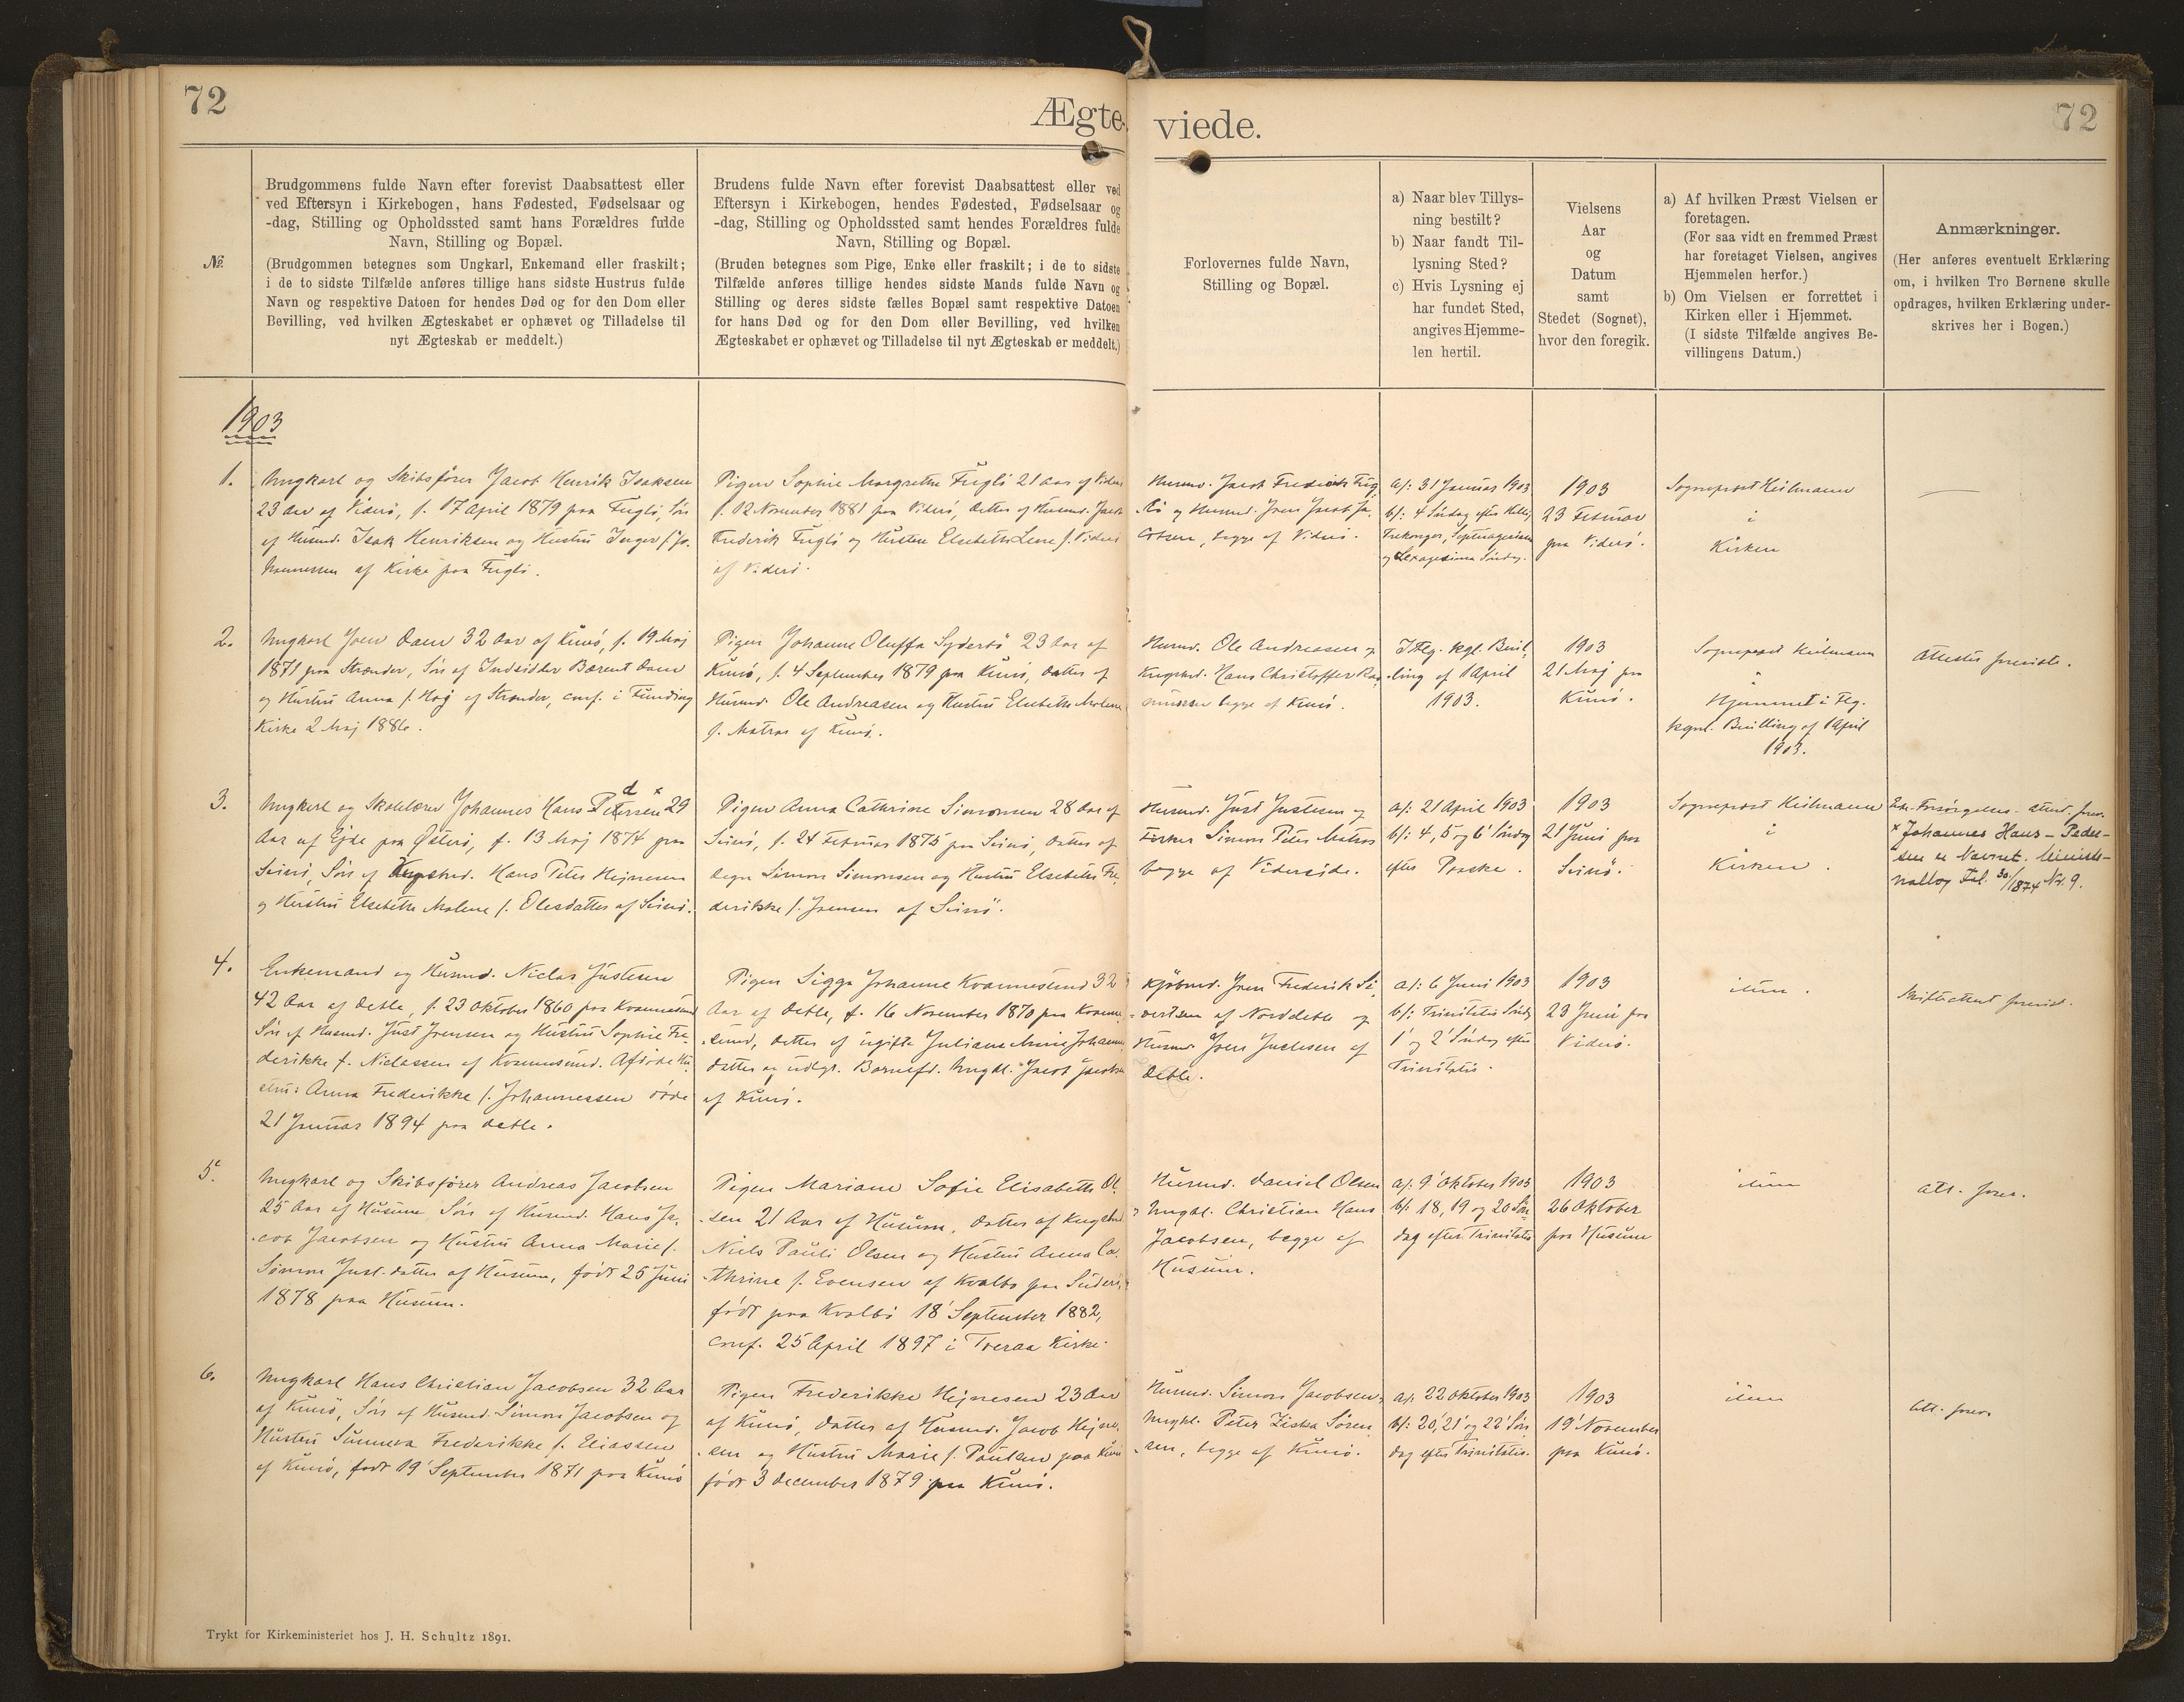 72
Ægte-
viede.
72
№
Brudgommens fulde Navn efter forevist Daabsattest eller
ved Eftersyn i Kirkebogen, hans Fødested, Fødselsaar og
-dag, Stilling og Opholdssted samt hans Forældres fulde
Navn, Stilling og Bopæl.
(Brudgommen betegnes som Ungkarl, Enkemand eller fraskilt;
i de to sidste Tilfælde anføres tillige hans sidste Hustrus fulde
Navn og respektive Datoen for hendes Død og for den Dom eller
Bevilling, ved hvilken Ægteskabet er ophævet og Tilladelse til
nyt Ægteskab er meddelt.)
Brudens fulde Navn efter forevist Daabsattest eller ved
Eftersyn i Kirkebogen, hendes Fødested, Fødselsaar og
-dag, Stilling og Opholdssted samt hendes Forældres fulde
Navn, Stilling og Bopæl.
(Bruden betegnes som Pige, Enke eller fraskilt; i de to sidste
Tilfælde anføres tillige hendes sidste Mands fulde Navn og
Stilling og deres sidste fælles Bopæl samt respektive Datoen
for hans Død og for den Dom eller Bevilling, ved hvilken
Ægteskabet er ophævet og Tilladelse til nyt Ægteskab er meddelt.)
Forlovernes fulde Navn,
Stilling og Bopæl.
a) Naar blev Tillys-
ning bestilt?
b) Naar fandt Til-
lysning Sted?
c) Hvis Lysning ej
har fundet Sted,
angives Hjemme-
len hertil.
Vielsens
Aar
og
Datum
samt
Stedet (Sognet),
hvor den foregik.
a) Af hvilken Præst Vielsen er
foretagen.
(For saa vidt en fremmed Præst
har foretaget Vielsen, angives
Hjemmelen herfor.)
b) Om Vielsen er forrettet i
Kirken eller i Hjemmet.
(I sidste Tilfælde angives Be-
villingens Datum.)
Anmærkninger.
(Her anføres eventuelt Erklæring
om, i hvilken Tro Børnene skulle
opdrages, hvilken Erklæring under-
skrives her i Bogen.)
1903
1.
Ungkarl og Skibsfører Jacob Henrik Isaksen
23 Aar af Viderö, f. 17 April 1879 paa Fuglö, Sön
af Husmd. Isak Henriksen og Hustru Inger f. Jo-
hannessen af Kirke paa Fuglö.
Pigen Sophie Margrethe Fuglö 21 Aar af Viderö
f. 12 November 1881 paa Viderö, Datter af Husmd. Jacob
Frederik Fuglö og Hustru Elsebeth Lene f. Viderö
af Viderö.
Husmd. Jacob Frederik Fug-
lö og Husmd. Joen Jacob Ja-
cobsen, begge af Viderö.
a/: 31 Januar 1903
b/: 4 Söndag efter Hellig
Trekonger, Septuagesima
og Sexagesima Söndag.
1903
23 Februar
paa Viderö.
Sognepræst Heilmann
i
Kirken
2.
Ungkarl Joen Dam 32 Aar af Kunö, f. 19 Maj
1871 paa Strænder, Sön af Indsidder Bærent Dam
og Hustru Anna f. Høj af Strænder, conf. i Funding
Kirke 2 Maj 1886.
Pigen Johanne Oluffa Syderbö 23 Aar af
Kunö, f. 4 September 1879 paa Kunö, Datter af
Husmd. Ole Andreasen og Hustru Elsebeth Malene
f. Matras af Kunö.
Husmd. Ole Andreasen og
Kngsbd. Hans Christoffer Ras-
mussen begge af Kunö.
Iflg. kgl. Bevil-
ling af 1 April
1903.
1903
21 Maj paa
Kunö.
Sognepræst Heilmann
Hjemmet i Flg.
kgl. Bevilling af 1 April
1903.
Attester foreviste.
3.
Ungkarl og Skolelærer Johannes Hans Petersen d × 29
Aar af Ejde paa Østerö, f. 13 Maj 1874 paa
Svinö, Sön af Kngsbd. Hans Peter Hejnesen
og Hustru Elsebeth Malene f. Olesdatter af Svinö.
Pigen Anna Cathrine Simonsen 28 Aar af
Svinö, f. 24 Februar 1875 paa Svinö, Datter af
Degn Simon Simonsen og Hustru Elsebeth Fre-
derikke f. Joensen af Svinö.
Husmd. Just Justesen og
Fisker Simon Peter Matras
begge af Videreide.
a/: 21 April 1903
b/: 4, 5 og 6 Söndag
efter Paaske.
1903
21 Juni paa
Svinö.
Sognepræst Heilmann
i
Kirken.
× Johannes Hans Peder-
sen er Navnet. Ministe-
rialbog Fol. 30/1874 Nr. 9.
4.
Enkemand og Husmd. Niclas Justesen
42 Aar af Deble, f. 23 Oktober 1860 paa Kvannesund
Sön af Husmd. Just Joensen og Hustru Sophie Fre-
derikke f. Niclassen af Kvannesund. Afdöde Hu-
stru: Anna Frederikke f. Johannessen döde
21 Januar 1894 paa Deble.
Pigen Sigga Johanne Kvannesund 32
Aar af Deble, f. 16 November 1870 paa Kvanne-
sund, Datter af ugifte Juliane Marie Johannes-
datter og udlgt. Barnefd. Ungkl. Jacob Jacobsen
af Kunö.
Kjöbmd. Joen Frederik Si-
vertsen af Norddeble og
Husmd. Joen Juelesen af
Deble.
a/: 6 Juni 1903
b/: Trinitatis Söndag
1 og 2 Söndag efter
Trinitatis.
1903
23 Juni paa
Viderö.
idem.
Skifteattest forevist.
5.
Ungkarl og Skibsfører Andreas Jacobsen
25 Aar af Husum, Sön af Husmd. Hans Ja-
cob Jacobsen og Hustru Anna Marie f.
Simon Just-datter af Husum, född 25 Juni
1878 paa Husum.
Pigen Mariane Sofie Elisabeth Ol-
sen 21 Aar af Husum, Datter af Kngsbd.
Niels Pauli Olsen og Hustru Anna Ca-
thrine f. Evensen af Kvalbö paa Suderö,
född paa Kvalbö 18 September 1882,
conf. 25 April 1897 i Tveraa Kirke.
Husmd. Daniel Olsen
Ungkl. Christian Hans
Jacobsen, begge af
Husum.
a/: 9 Oktober 1903
b/: 18, 19 og 20 Sön-
dag efter Trinitatis
1903
26 Oktober
paa Husum
idem
att. forev.
6.
Ungkarl Hans Christian Jacobsen 32 Aar
af Kunö, Sön af Husmd. Simon Jacobsen og
Hustru Sunneva Frederikke f. Eliassen
af Kunö, född 19 September 1871 paa Kunö
Pigen Frederikke Hejnesen 23 Aar
af Kunö, Datter af Husmd. Jacob Hejne-
sen og Hustru Marie f. Poulsen paa Kunö
född 3 December 1879 paa Kunö.
Husmd. Simon Jacobsen,
Ungkl. Peter Ziska Sören-
sen, begge af Kunö.
a/: 22 Oktober 1903
b/: 20, 21 og 22 Sön-
dag efter Trinitatis.
1903
19 November
paa Kunö.
idem
att. forev.
Trykt for Kirkeministeriet hos J. H. Schultz 1891.